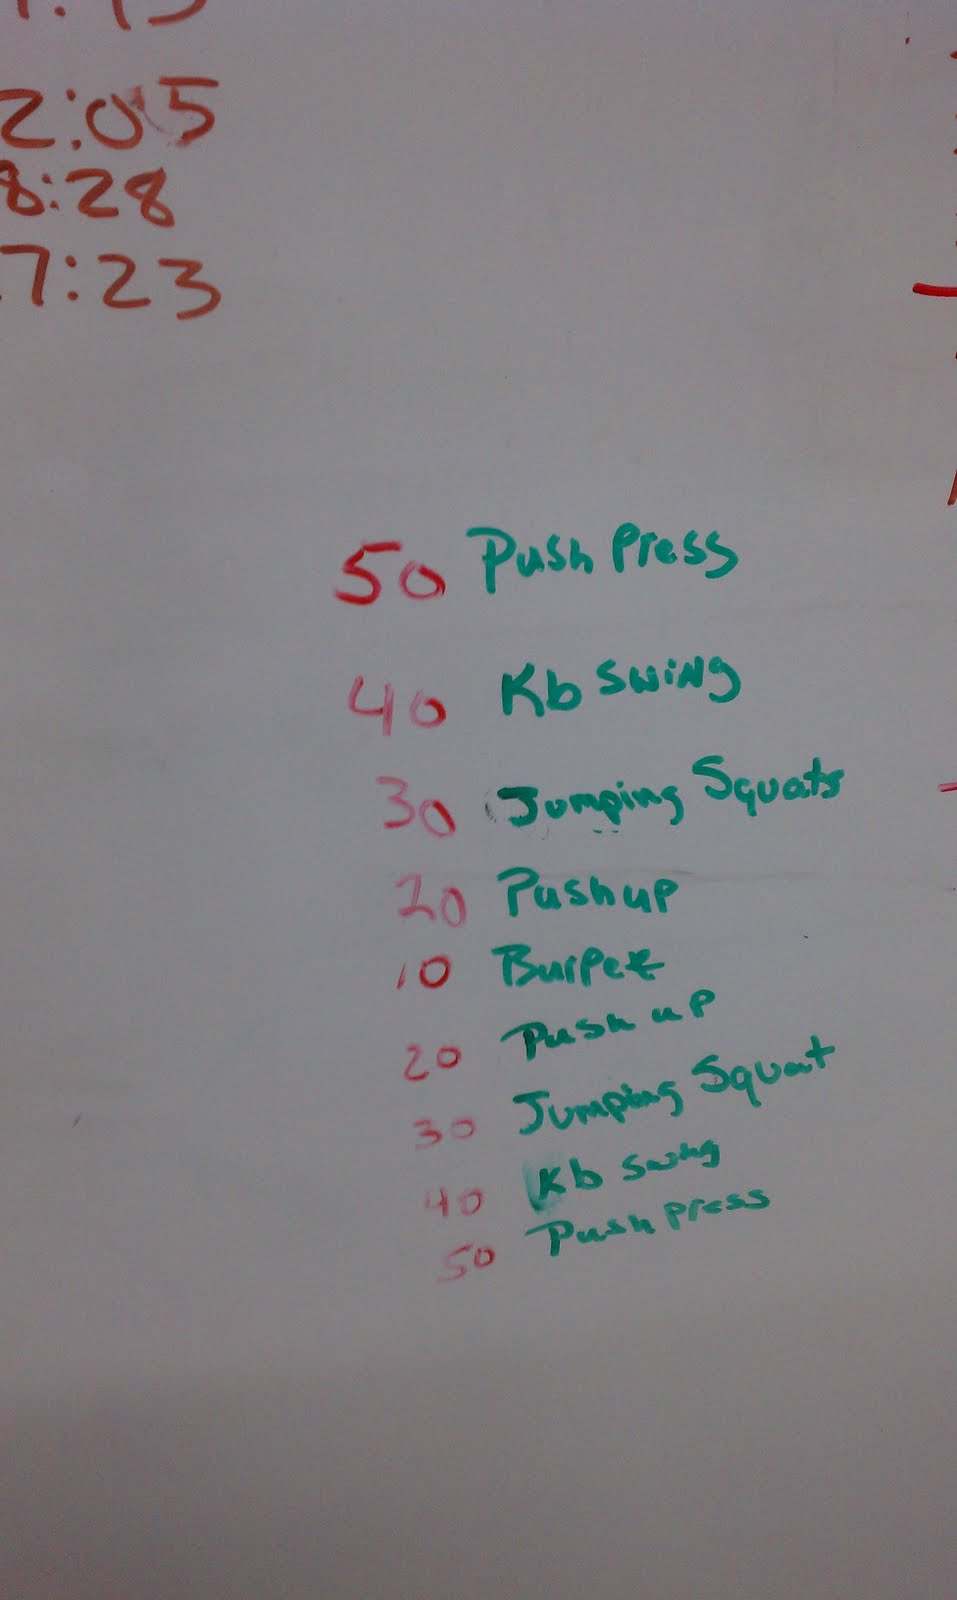 2:05
8:28
7:23
50 Push Press
40 Kb Swing
30 Jumping Squats
20 Pushup
10 Burpee
20 Push up
30 Jumping Squat
40 Kb swing
50 Push press